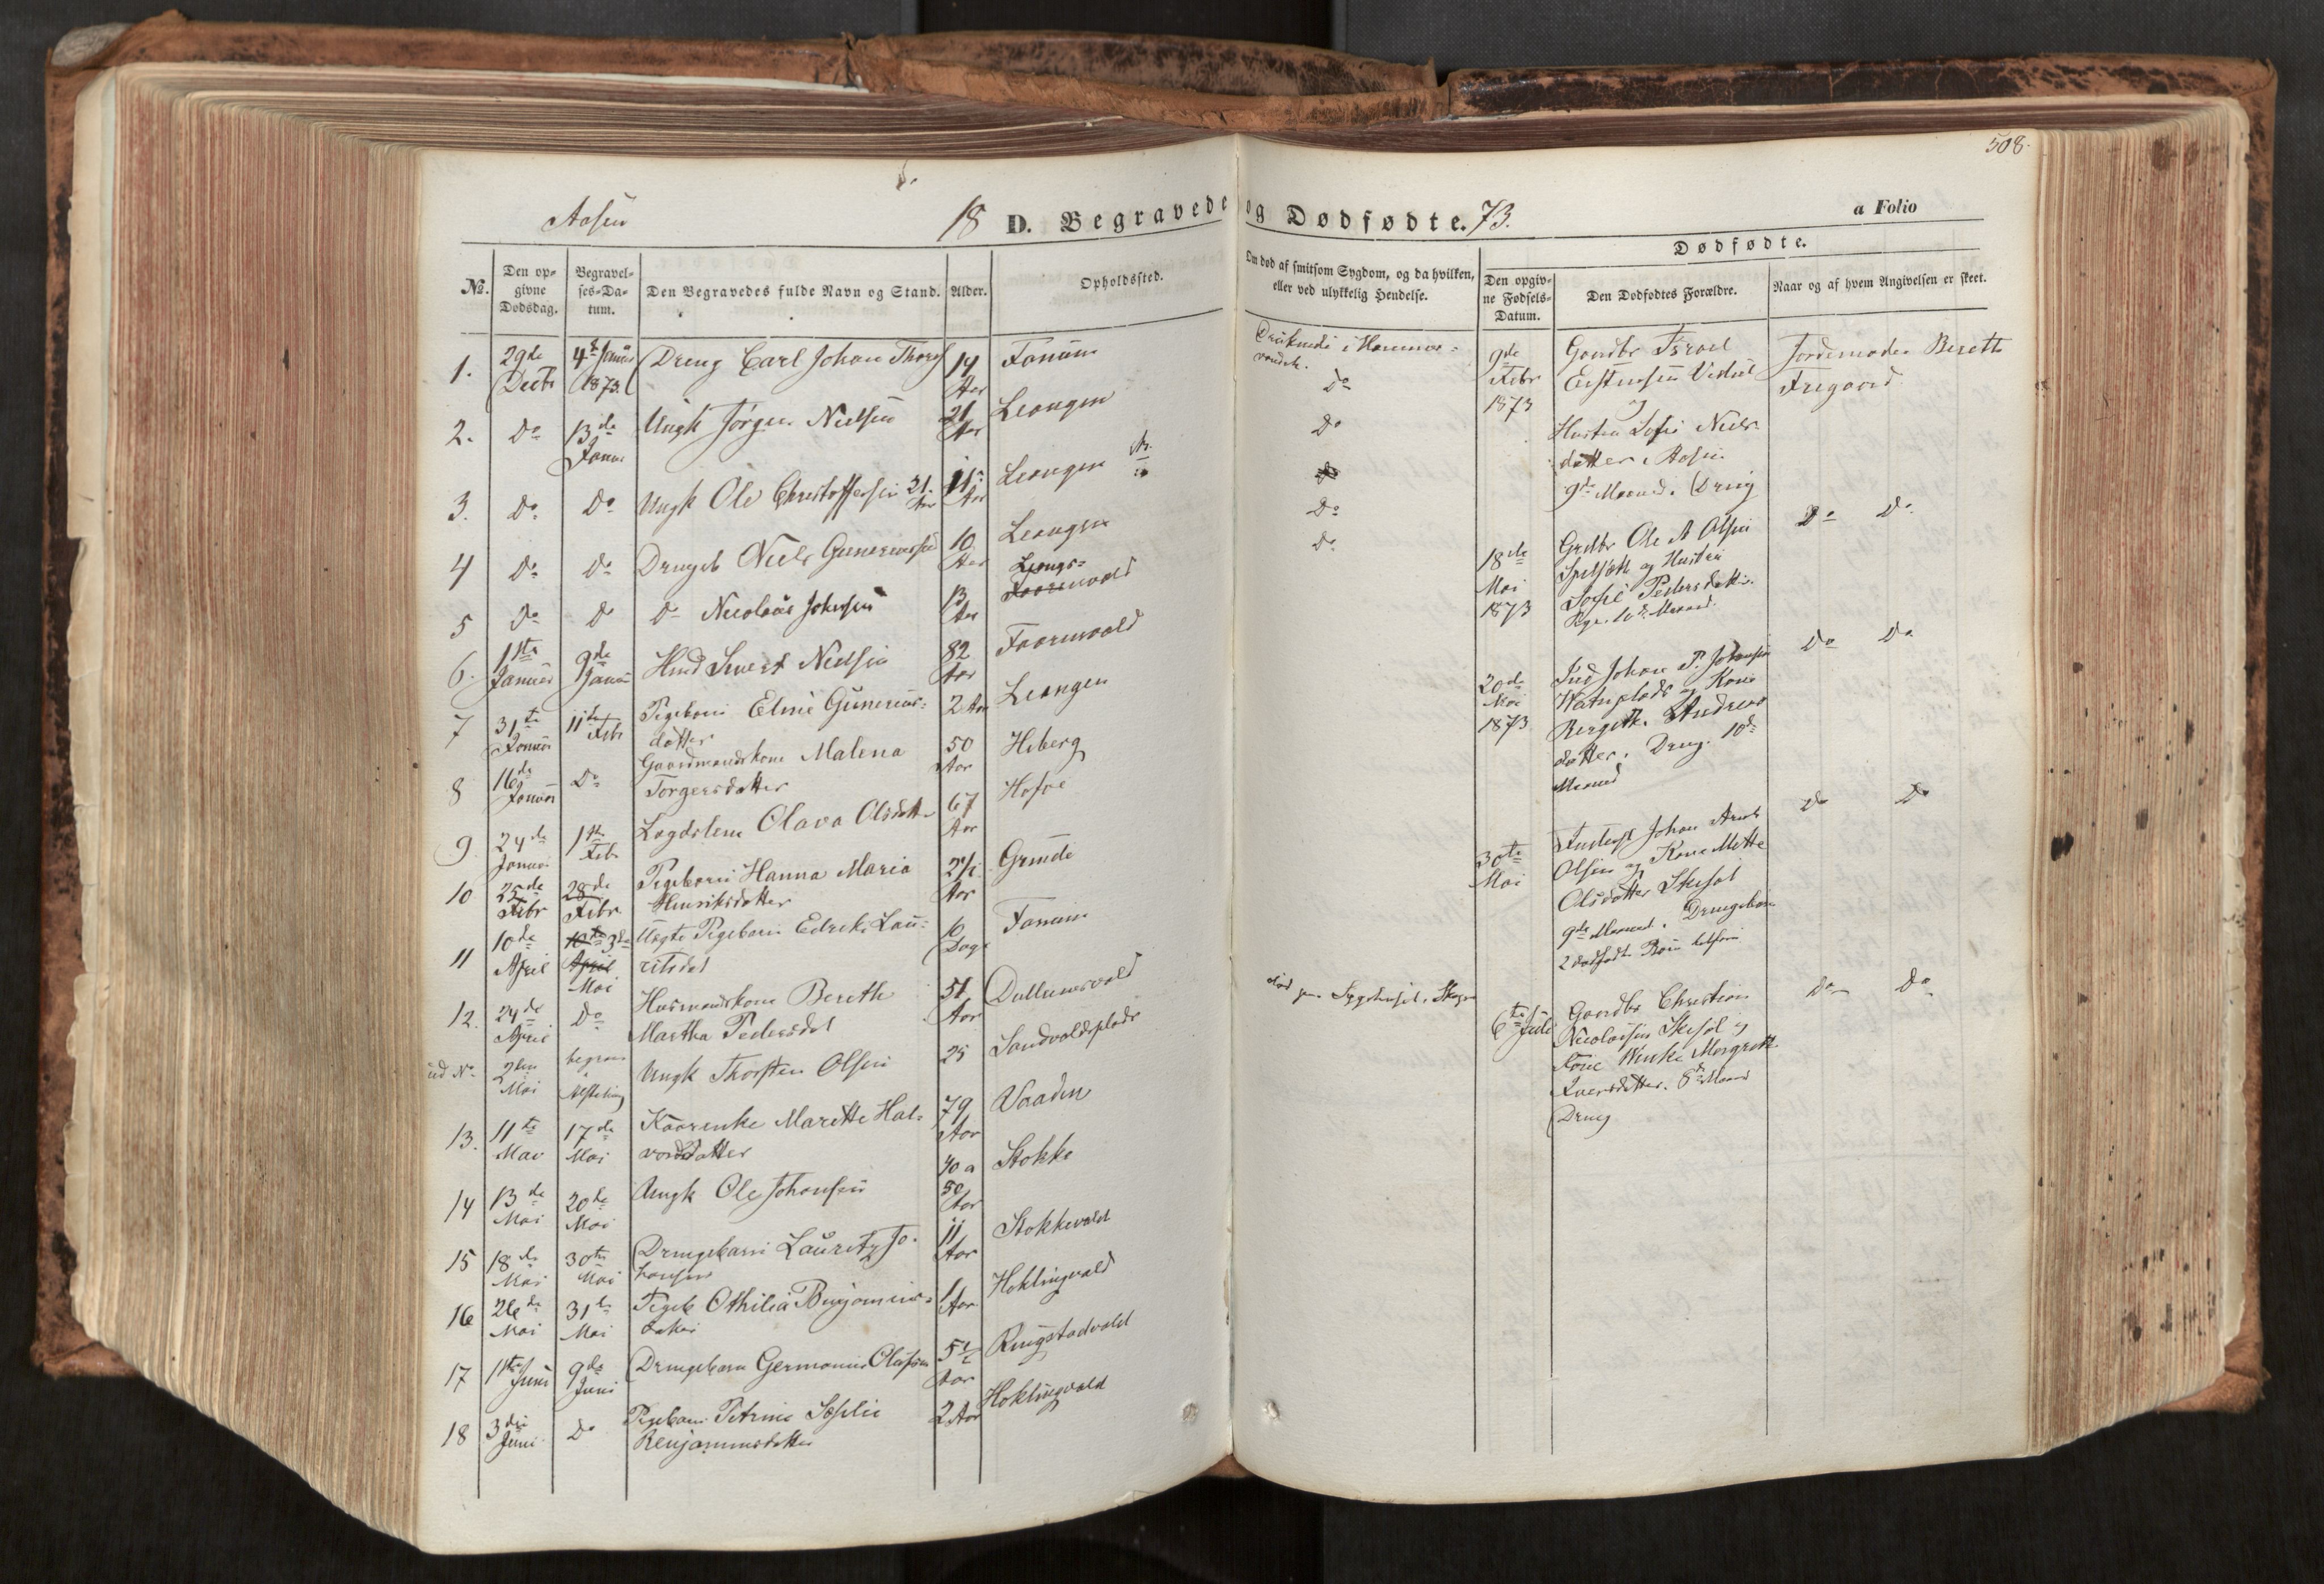 508.
Aasen
18 D. Begravede og Dødfødte. 73.
a Folio
No.
Den opgivne Dødsdag.
Begravelses-Datum.
Den Begravedes fulde Navn og Stand.
Alder.
Opholdssted.
Om død af smitsom Sygdom, og da hvilken, eller ved ulykkelig Hendelse.
Dødfødte.
Den opgivne Fødsels-Datum.
Den Dødfødtes Forældre.
Naar og af hvem Angivelsen er skeet.
1. 29de Decbr 4de Januar 1873. Dreng Carl Johan Thores 14 Aar Fanum
2. Do 13de Januar Ungk Jørgen Nielsen 21 Aar Leangen Do
3. Do Do Ungk Ole Christoffersen 21 Aar Leangen Do
4 Do Do Drengeb Niels Gunerussen 10 Aar Leangen Do
5 Do Do Do Nicolaus Johnsen 13 Aar Do
6. 1ste Januar 9de Januar Sivert Nielsen 82 Aar Faarenvald
7 31te Januar 11te Febr Pigebarn Eline Gunerius-
datter 2 Aar Leangen
8 16de Januar Do Gaardmandskone Malena
Torgersdatter 50 Aar Hiberg
9 24de Januar 1ste Febr Lægdslem Olava Olsdatter 67 Aar
10 25de Febr 28de Febr Pigebarn Hanna Maria
Henriksdatter 2½ Aar Grinde
11 10de April 10de 3de April Mai Uægte Pigebarn Edvike Lau-
ritsdat 10 Dage Fanum
12. 24de April Do Husmandskone Bereth
Martha Pedersdat 51 Aar Dullumsvald
ud No. 2den Mai Ungk Thorsten Olsen 25 Sandvaldsplads
13. 11te Mai 17de Mai Kaarenke Marette Hal-
vorsdatter 79 Aar Vaaden
14 13de Mai 20de Mai Ungk Ole Johansen 40 a 50 Aar Stokke
15 18de Mai 30te Mai Drengebarn Lauritz Jo-
hansen 11 Aar Stokkevald
16 26de Mai 31te Mai Pigeb Othilia Benjamins-
datter 1 Aar Hoklingvald
17 1ste Juni 9de Juni Drengebarn Germanus Olufsen 5½ Aar Ringstadvald
18 3die Juni Do Pigebarn Petrine Sofilie
Benjaminsdatter 2 Aar Hoklingvald
9de Febr 1873
Gaardbr Israel
og
Hustru Sofie Niels-
datter i Aasen.
9de Maaned. Dreng
Jordemoder Bereth
18de Mai 1873
Grdbr Ole A Olsen
og Hustru
Sofie Pedersdatter.
Pige. 10de Maaned.
Do Do
20de Mai 1873
Ind Johan P. Johansen
og Kone
Bergitte Andreas
datter. Dreng. 10de
Maaned
Do Do
30te Mai
Johan Arndt
Olsen og Kone Mette
Olsdatter Skesol
9de Maaned. Drengebarn
Do Do
6te Juli
Gaardbr Christian
Nicolaisen Skesol og
Kone
8de Maaned
Dreng
Do Do